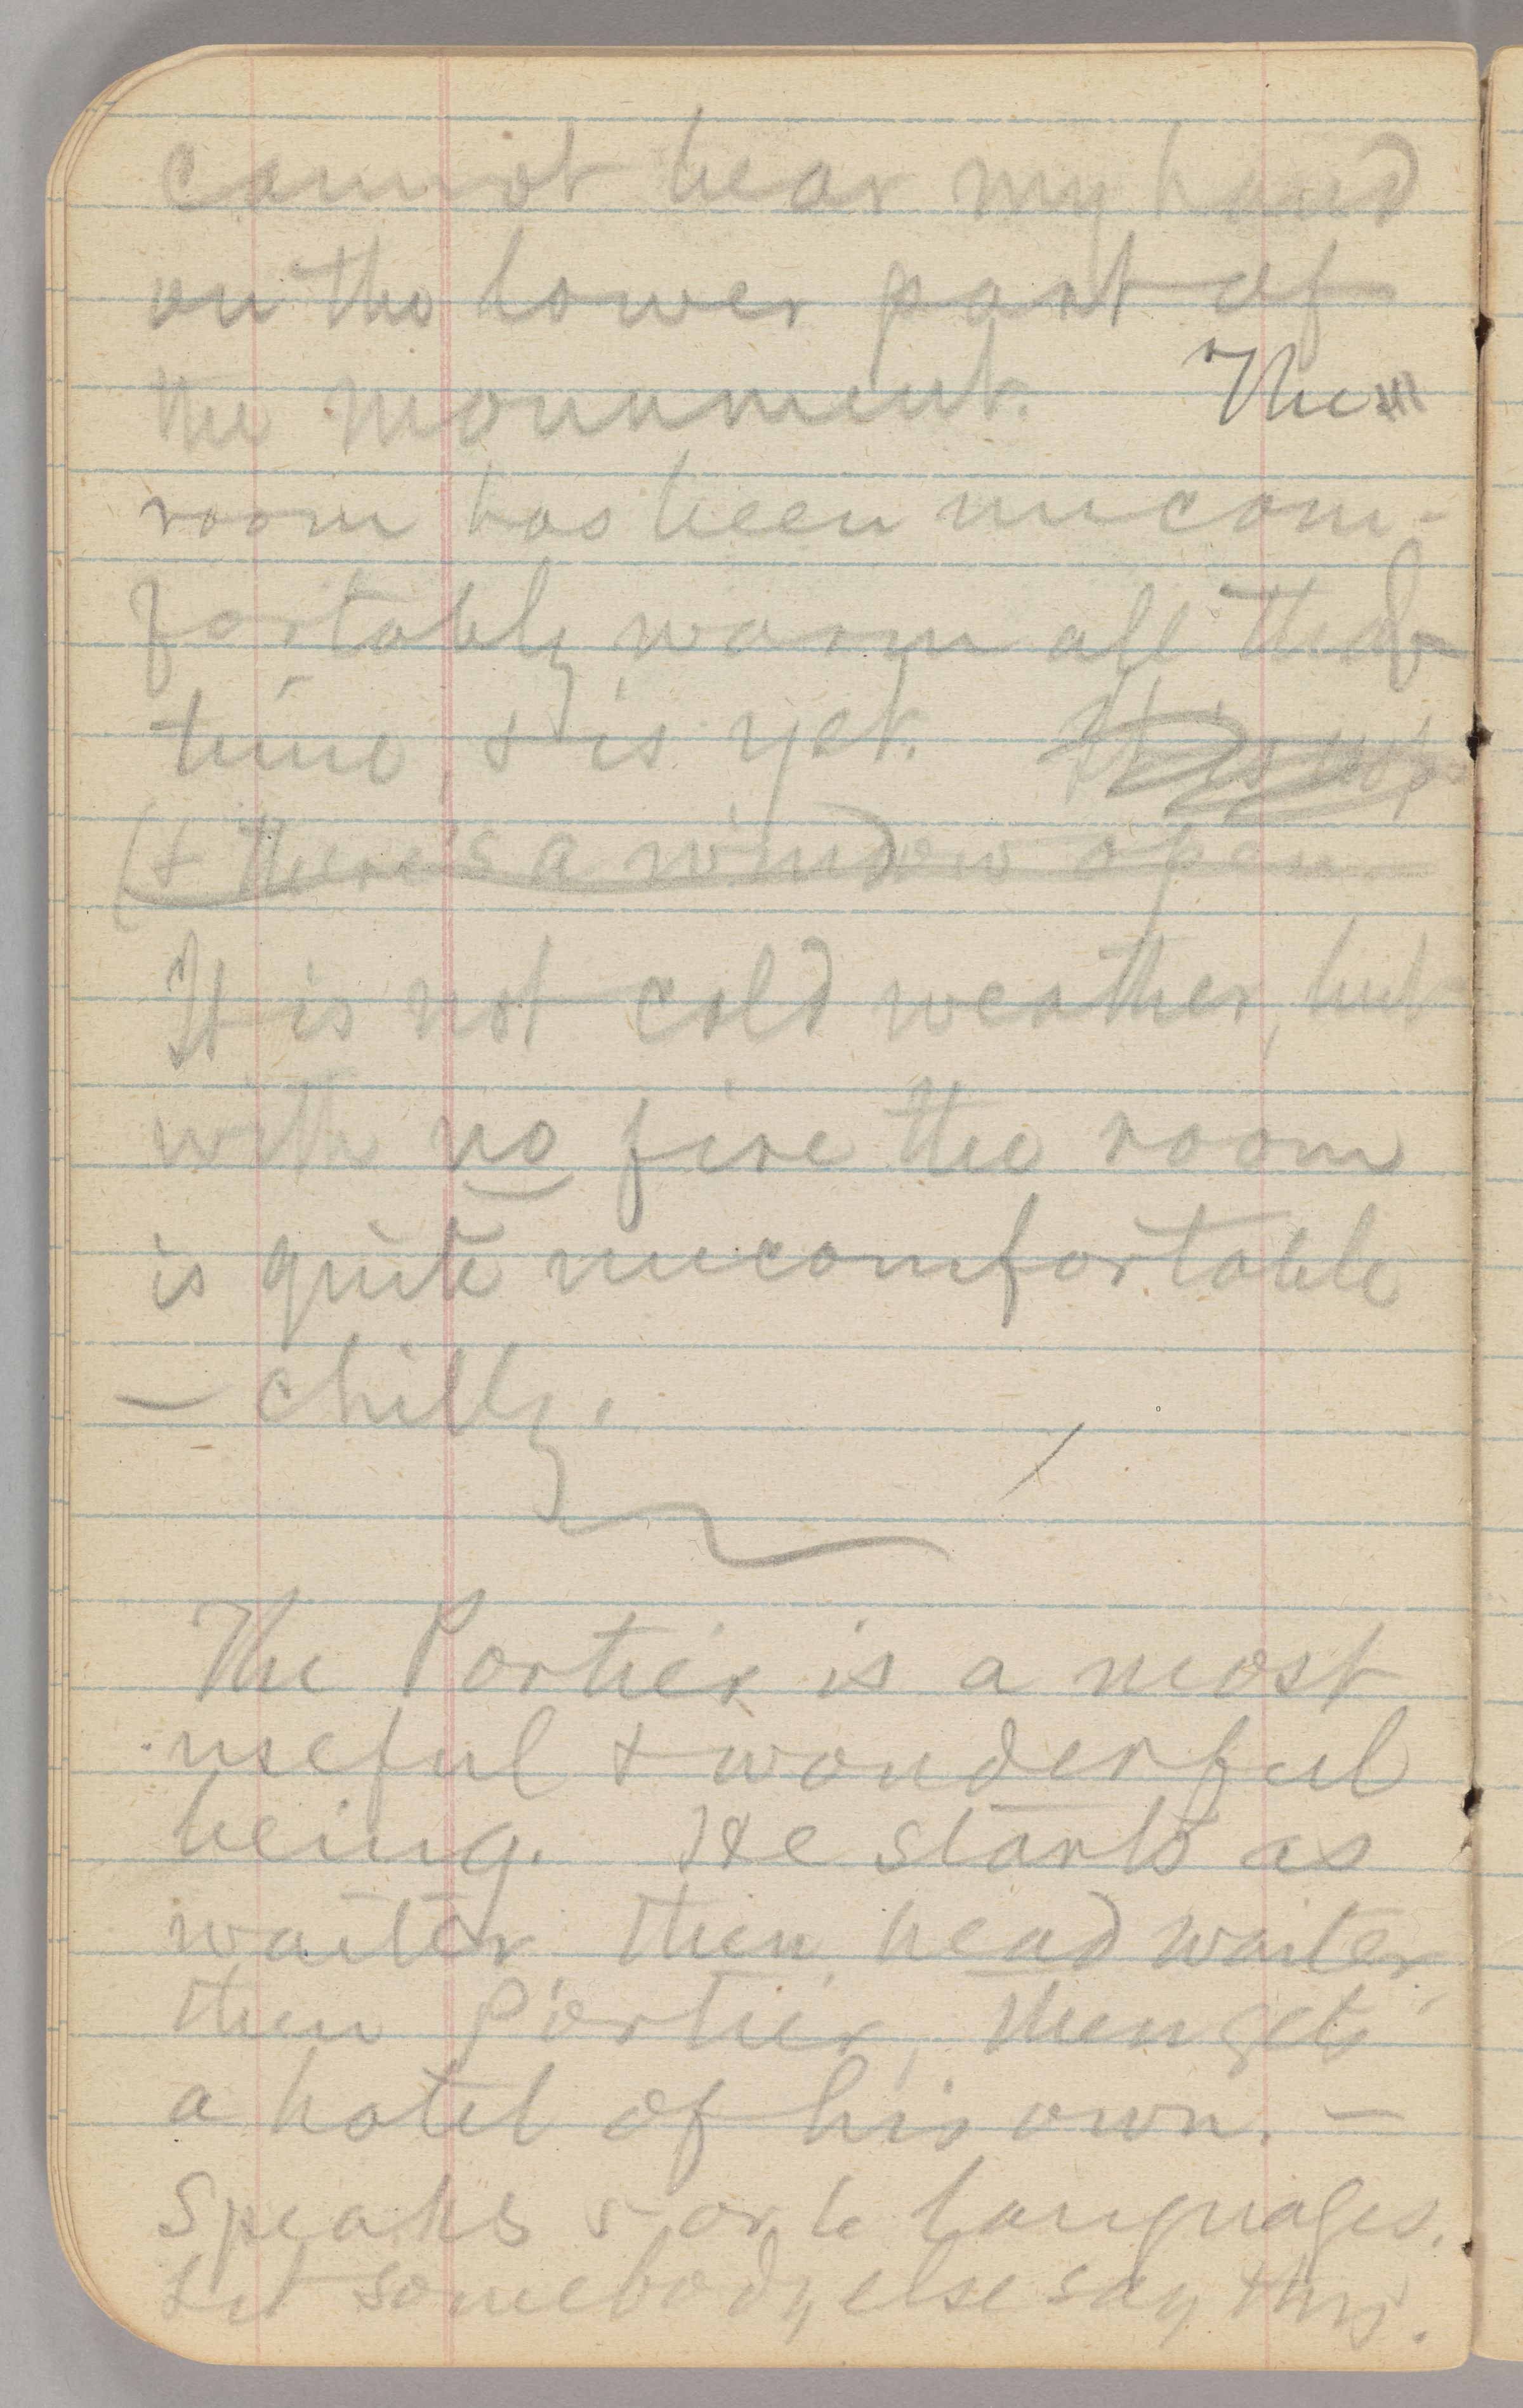 cannot bear my hand
on the lower part of
the monument. The
room has been uncom-
fortably warm all the
time, & is yet. It is not
(& there's a window open
It is not cold weather, but
with no fire the room
is quite uncomfortable
— chilly.
The Portier is a most
useful & wonderful
being. He starts as
waiter then head waiter
then Portier, then gets
a hotel of his own. —
Speaks 5 or 6 languages.
Let somebody else say this.